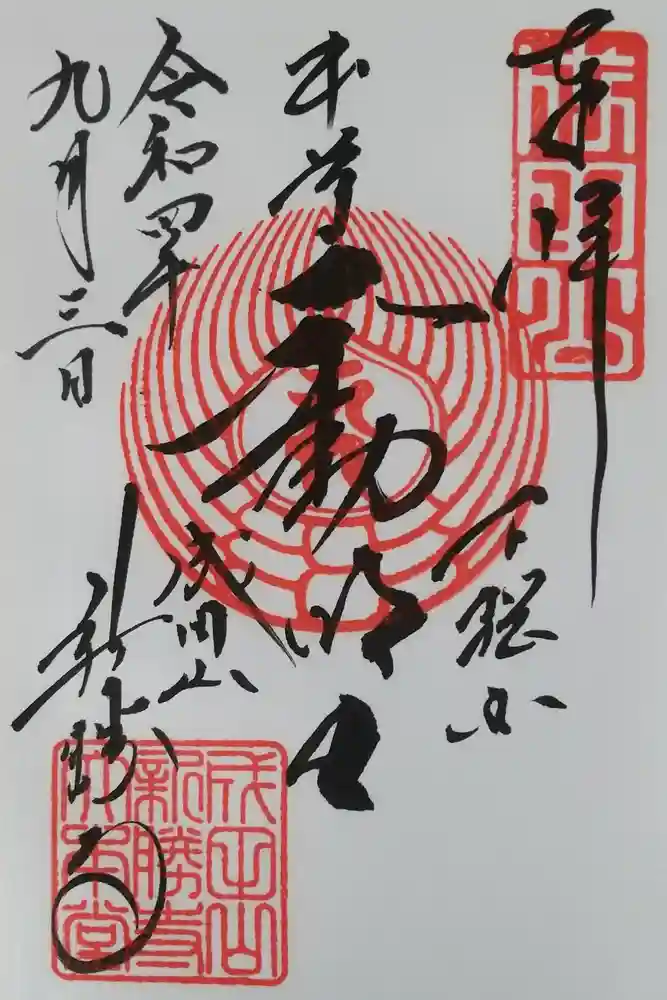 奉拝
成田山
下総国
本尊不動明王
令和四年
九月三日
成田山
新勝寺
成田山
新勝寺
大本堂